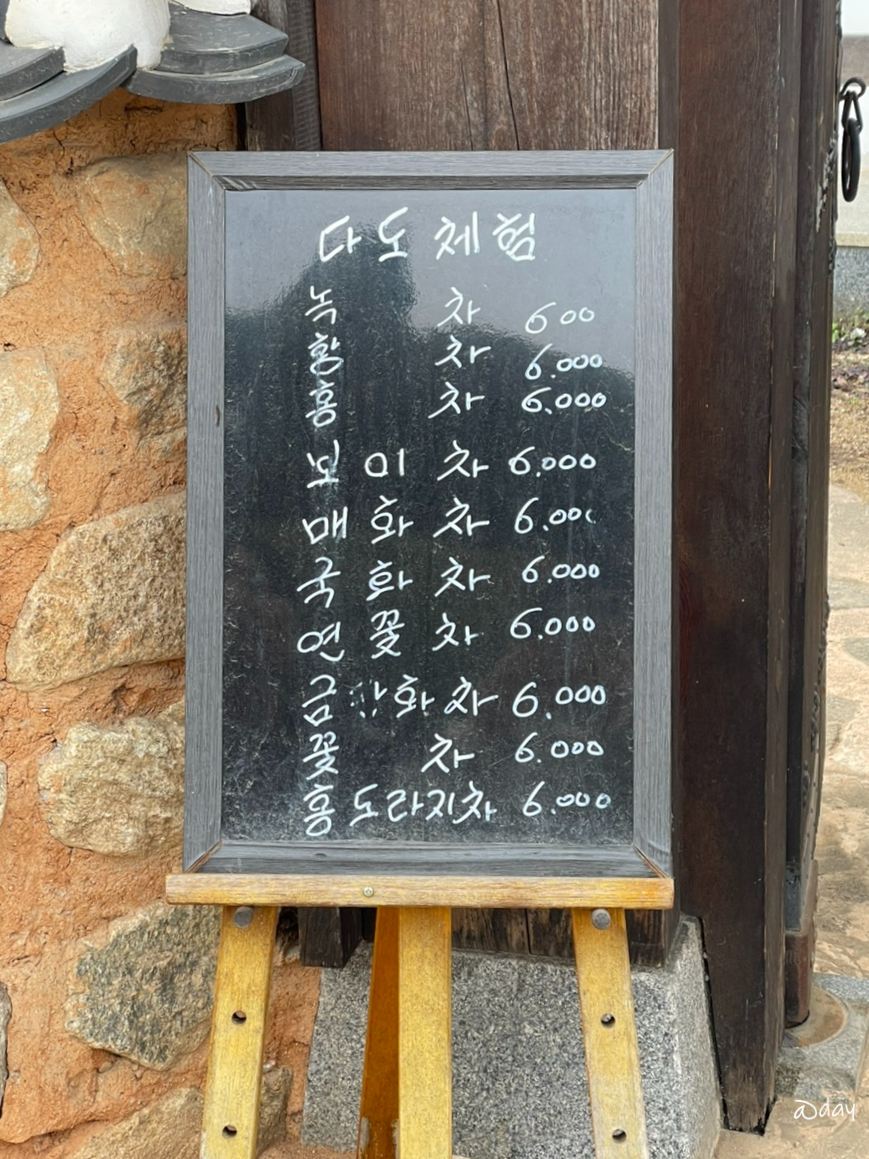 다도 체험
녹 차 6 00
황 차 6.000
홍 차 6.000
보 이 차 6.000
매 화 차 6.00
국 화 차 6.000
연 꽃 차 6.000
금 화차 6.000
꽃 차 6.000
홍 도라지차 6.000
@day